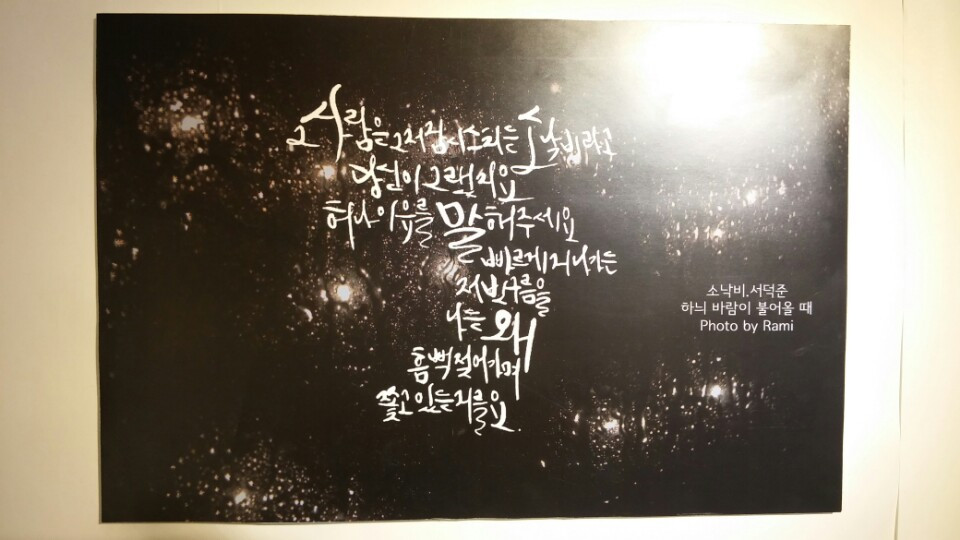 그 사람은 그저 잠시 스치는 소낙비라고
당신이 그랬지요
허나 이유를 말해주세요
빠르게 지나가는
저 비구름을
나는 왜
흠뻑 젖어가며
쫓고 있는지를요.
소낙비.서덕준
하늬 바람이 불어올 때
Photo by Rami